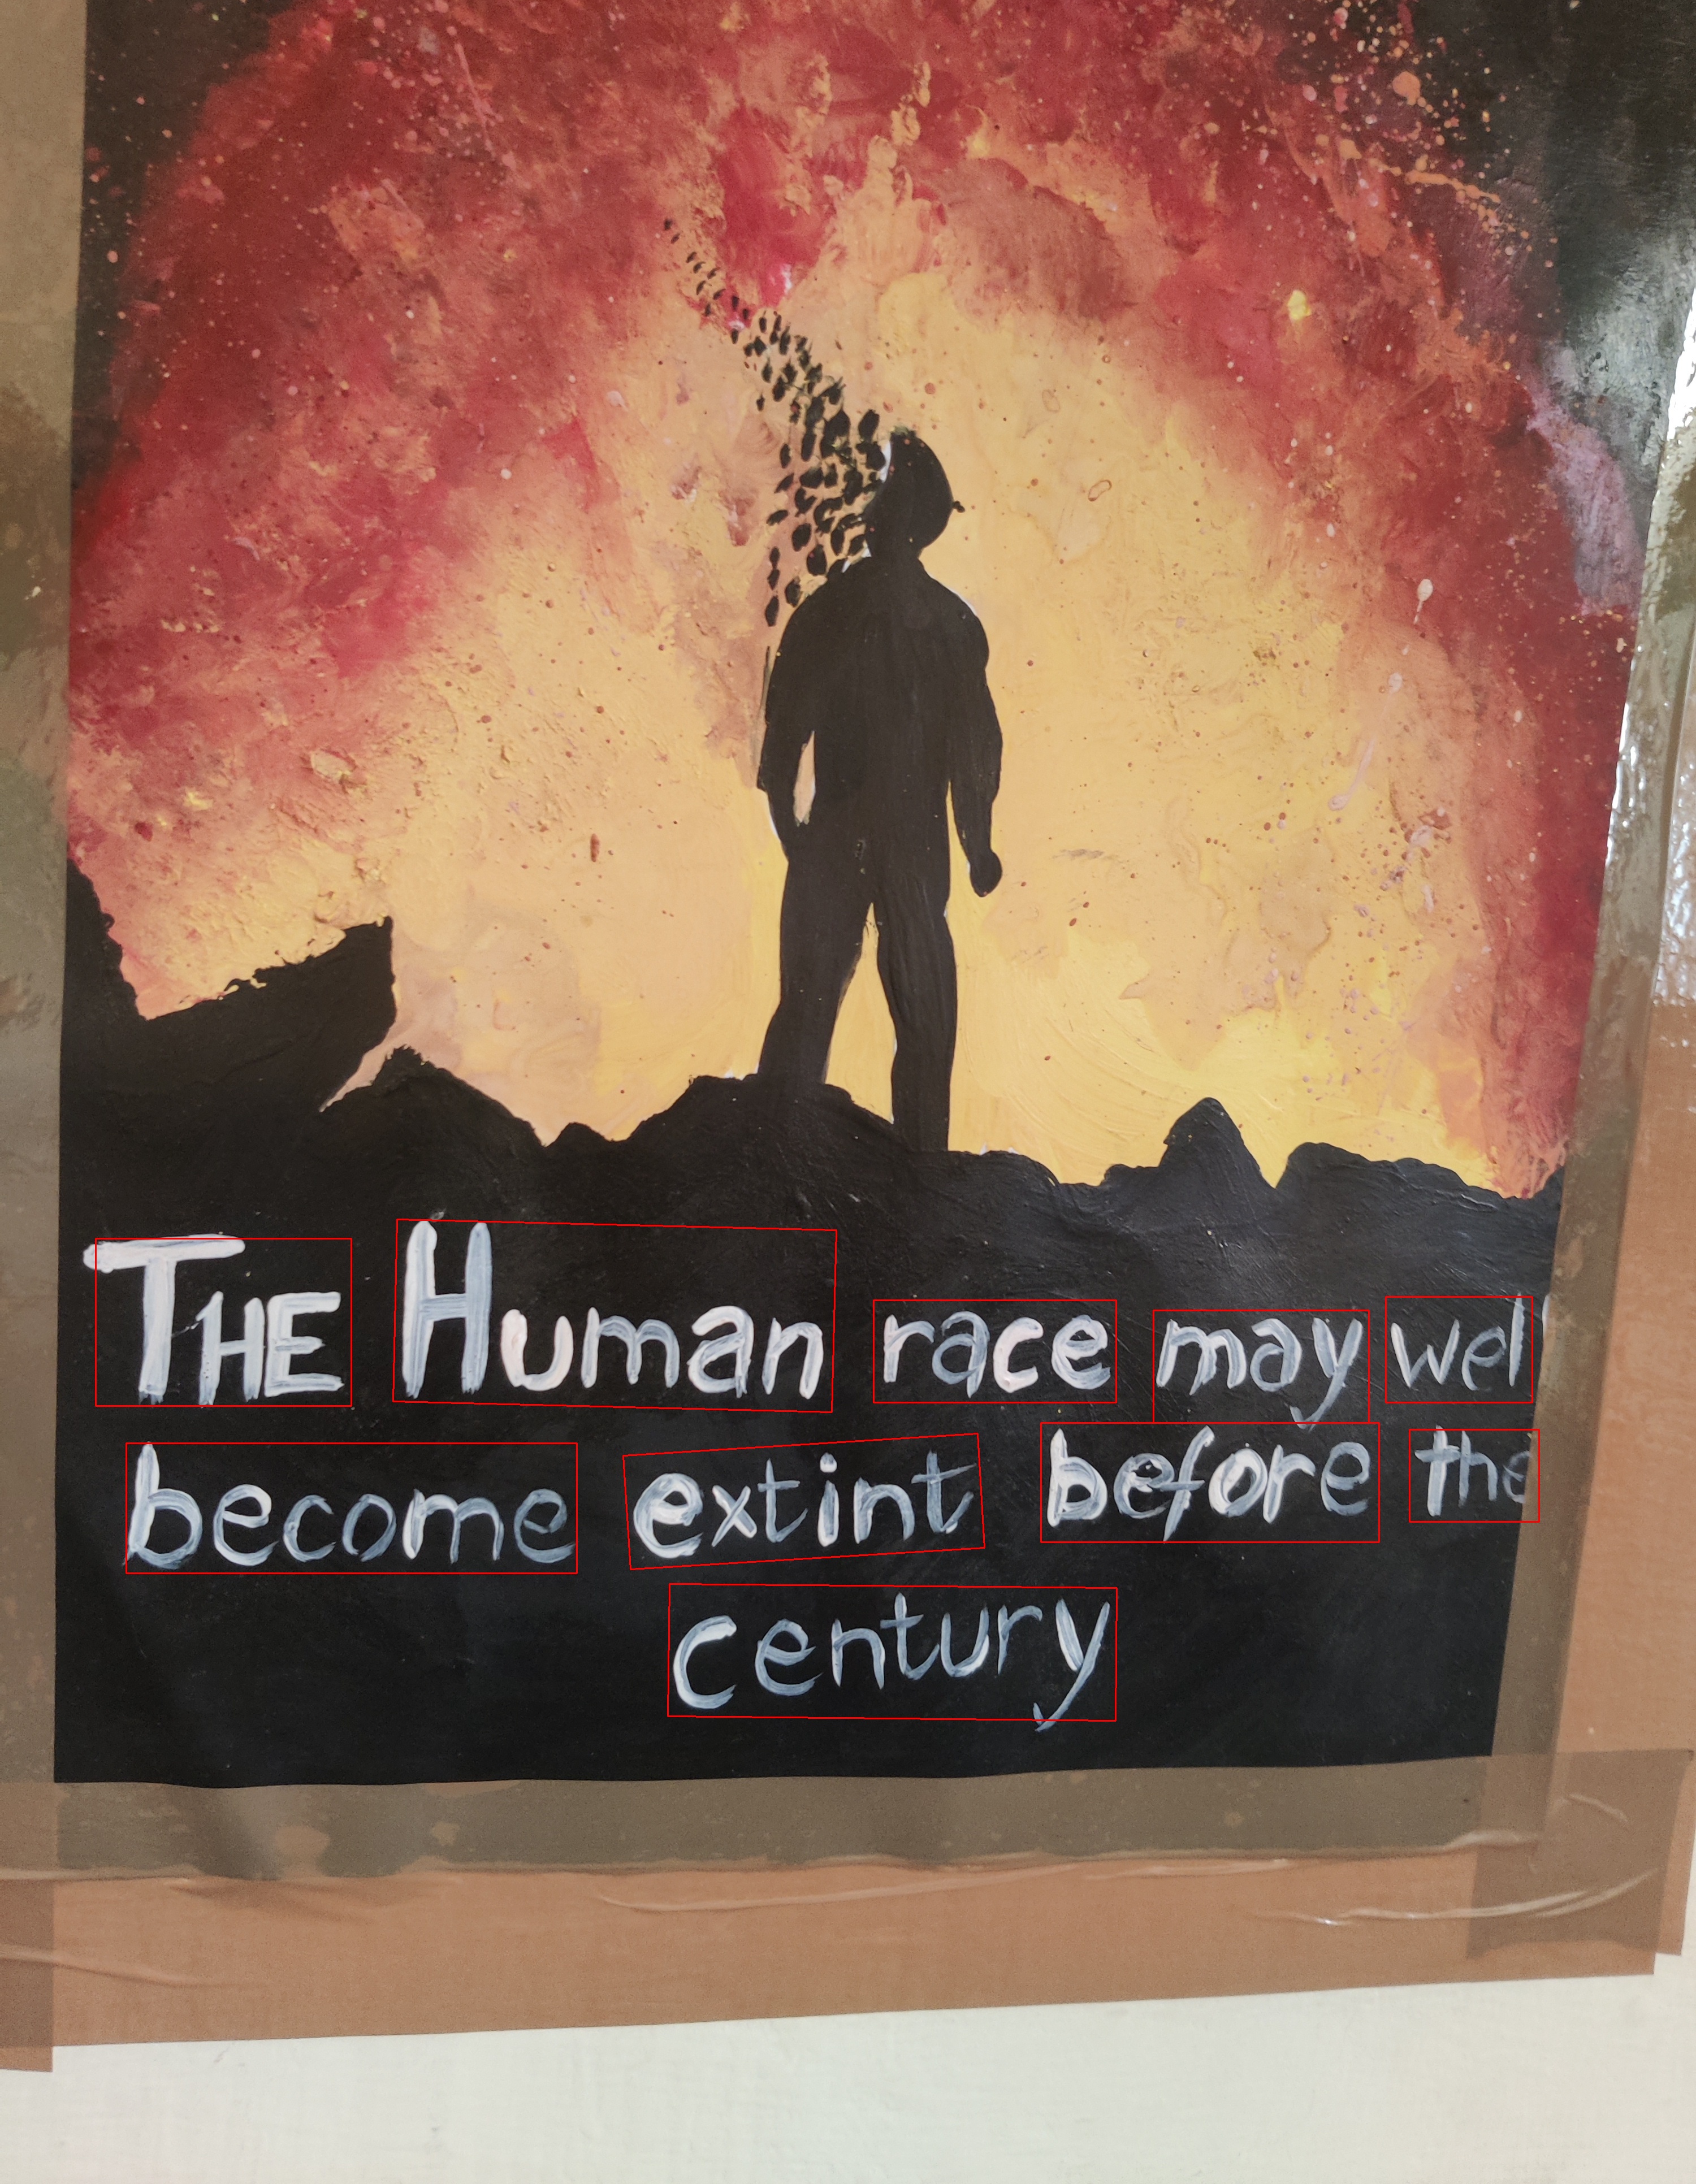 THE Human race may well
become extint before the
century